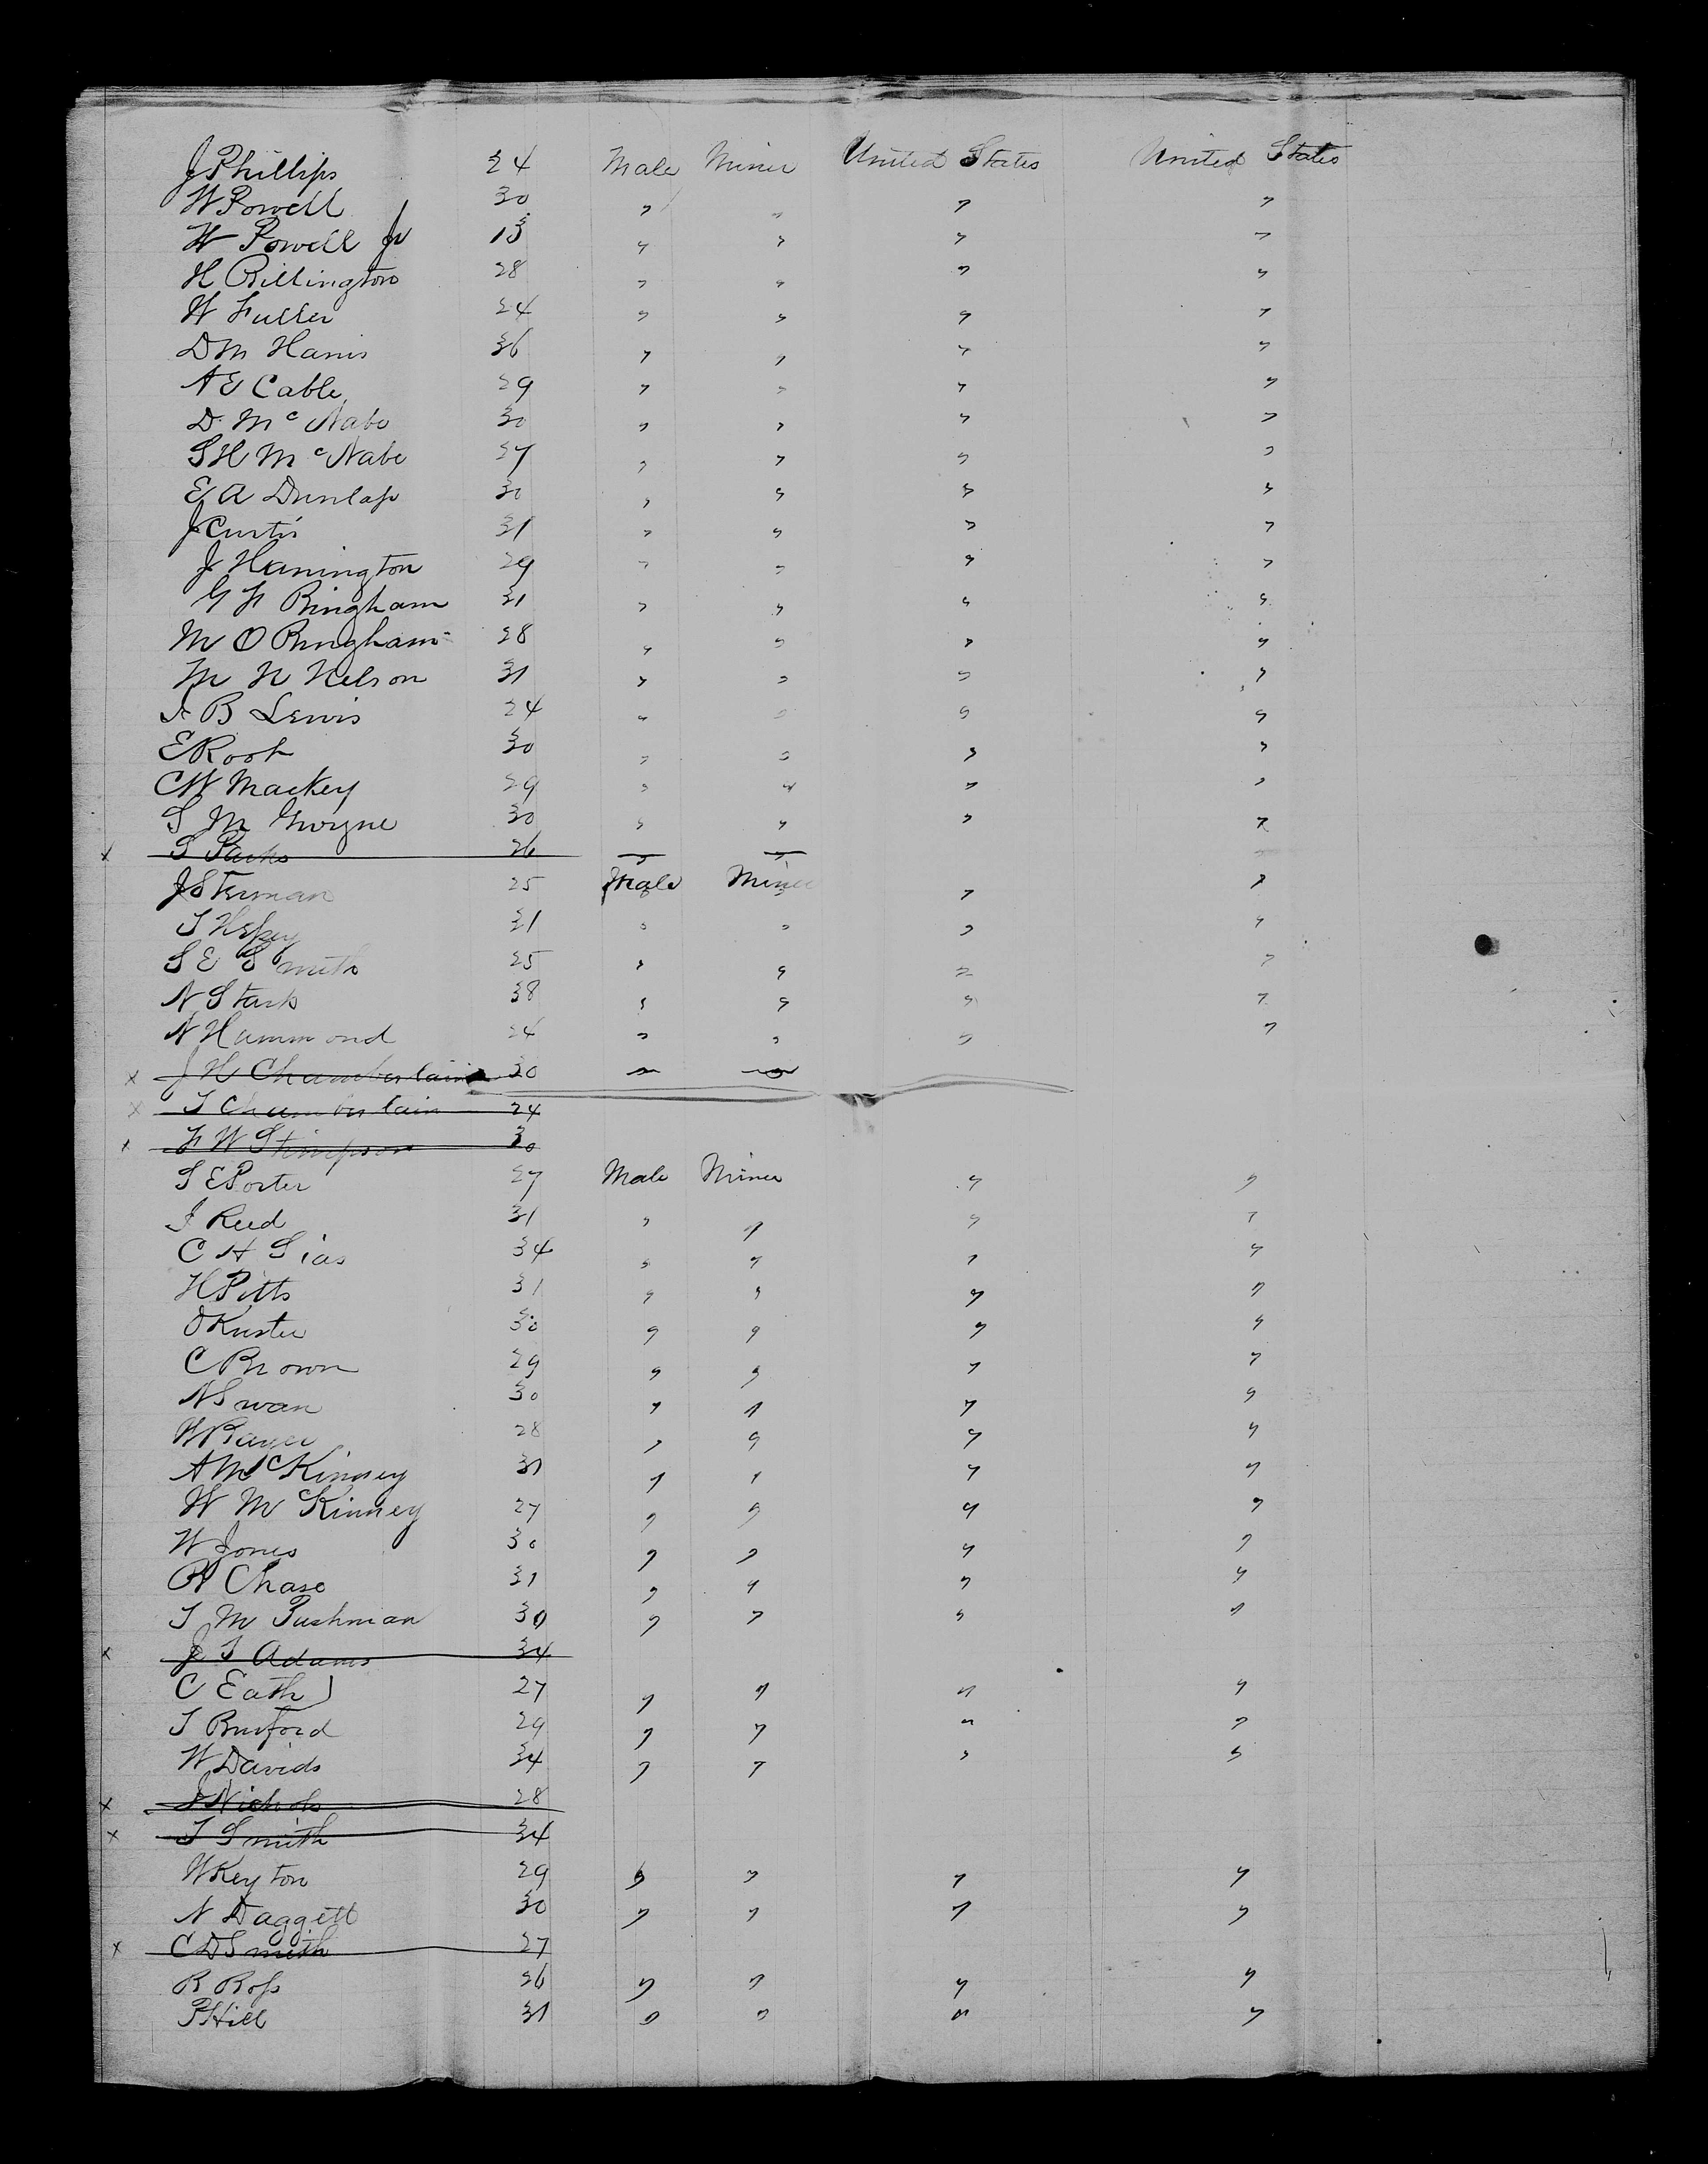 J Phillips 24 Male Miner United States United States
W Powell 30 " " " "
W Powell Jr 13 " " " "
H Billington 28 " " " "
W Fuller 24 " " " "
D M Harris 36 " " " "
A E Cable 29 " " " "
D. Mc Nabe 30 " " " "
S H Mc Nabe 27 " " " "
E A Dunlap 30 " " " "
J Curtis 31 " " " "
J Hanington 29 " " " "
G F Bingham 31 " " " "
M O Bingham 28 " " " "
M N Nelson 31 " " " "
A B Lewis 24 " " " "
E Root 30 " " " "
C W Mackey 29 " " " "
S M Gwyne 30 " " " "
x S Parks 26 " "
J Sterman 25 Male Miner " "
T 31 " " " "
S E Smith 25 " " " "
N Stark 38 " " " "
N Hammond 24 " " " "
x J H Chamberlain 30 " "
x T Chamberlain 24
x F W Stimpson 30
S E Porter 27 Male Miner " "
J Reed 31 " " " "
C H Sias 34 " " " "
H Pitts 31 " " " "
O Kuster 30 " " " "
C Brown 29 " " " "
N Swan 30 " " " "
W 28 " " " "
A Mc Kinney 31 " " " "
W Mc Kinney 27 " " " "
W Jones 30 " " " "
R Chase 31 " " " "
T M Pushman 30 " " " "
x J T Adams 34
C Eath 27 " " " "
T Burford 29 " " " "
W Davids 34 " " " "
x J Nichols 28
x T Smith 34
W Keyton 29 " " " "
N Daggett 30 " " " "
x C D Smith 27
R Ross 26 " " " "
P Hill 31 " " " "